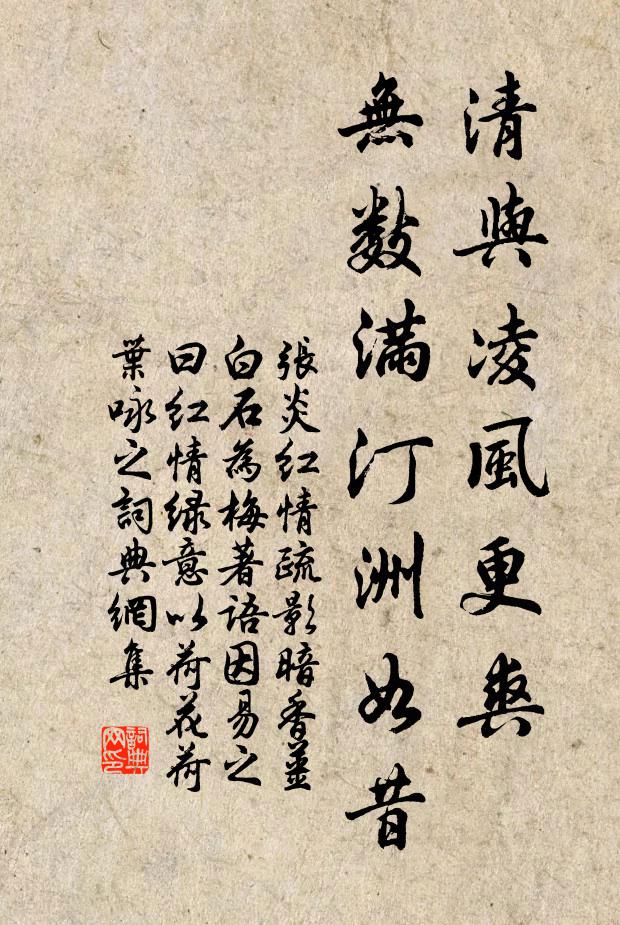 清與凌風更爽
無數滿汀洲如昔
張炎紅情疏影暗香薑
白石為梅著語因易之
曰紅情緑意以荷花荷
葉咏之詞典網集
詞典網印